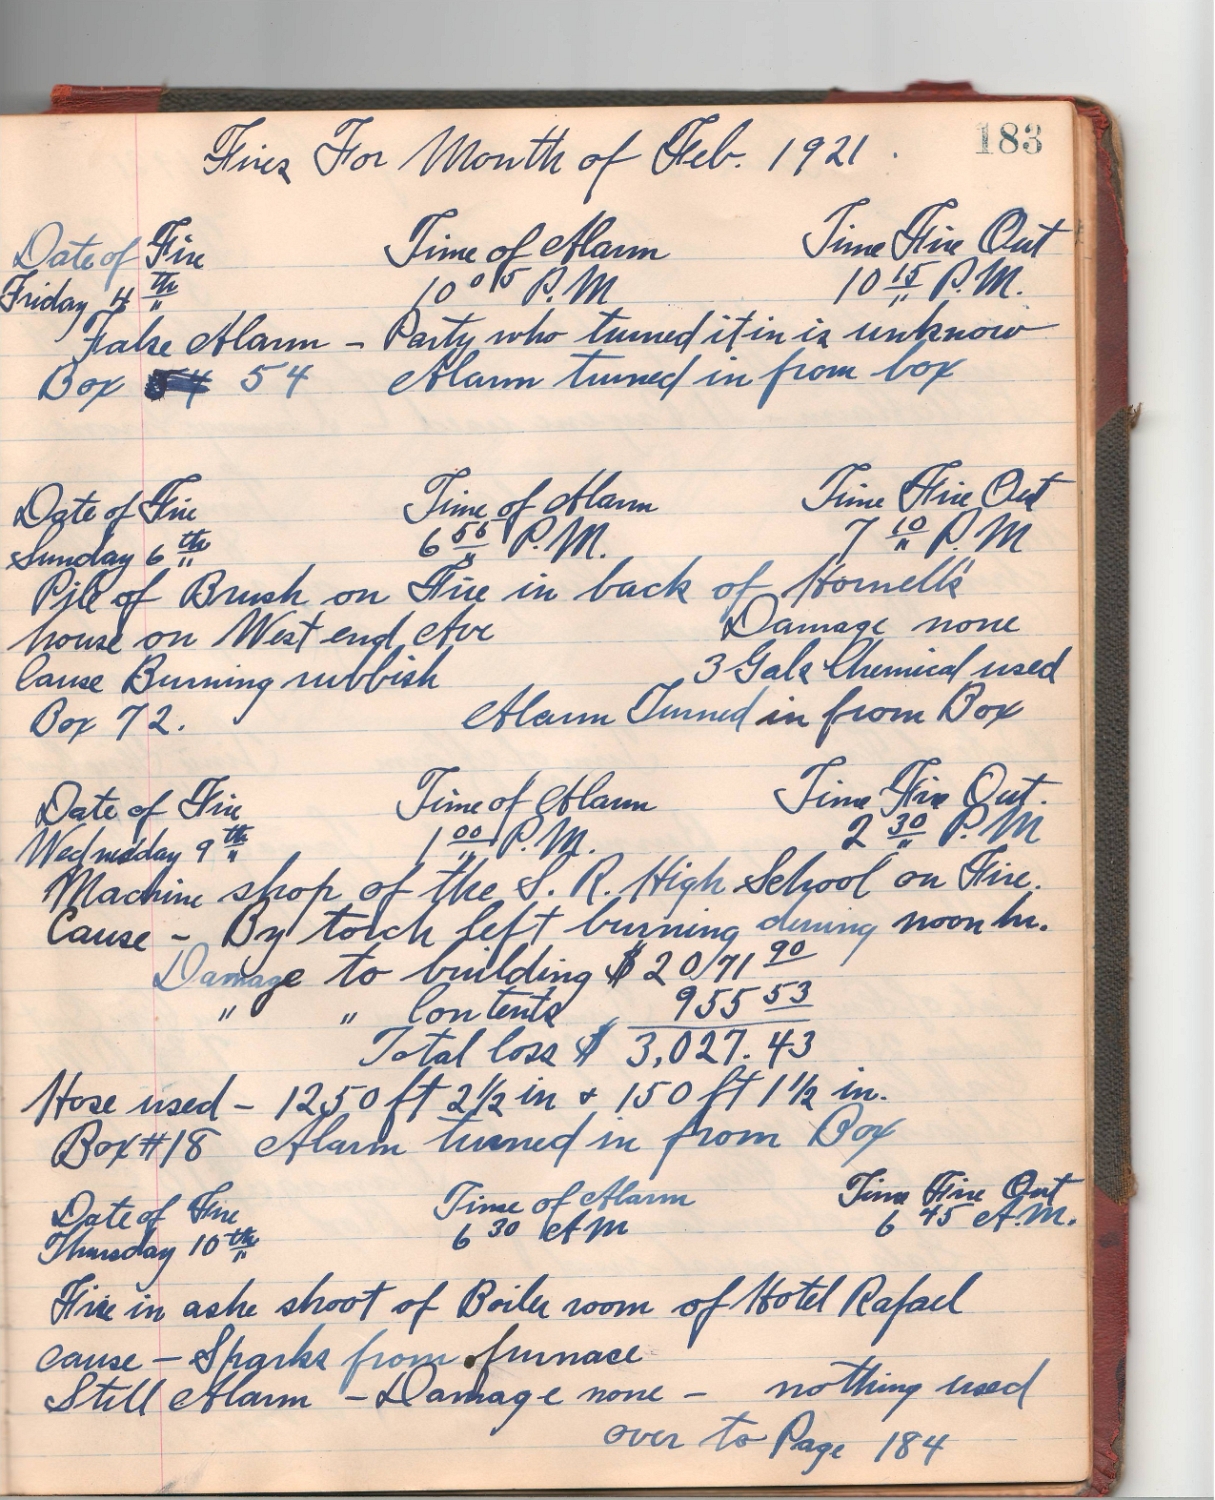 183
Fires For Month of Feb. 1921.
Date of Fire Time of Alarm Time Fire Out
Friday 4th 10 05 P.M 10 15 P.M.
False Alarm - Party who turned it in is unknow
Box 54 54 Alarm turned in from box
Date of Fire Time of Alarm Time Fire Out
Sunday 6th 6 55 P.M. 7 10 P.M
Pile of Brush on Fire in back of Hornell's
house on West end Ave Damage none
Cause Burning rubbish 3 Gals Chemical used
Box 72. Alarm Turned in from Box
Date of Fire Time of Alarm Time Fire Out.
Wednesday 9th 1 00 P.M. 2 30 P.M
Machine shop of the S. R. High School on Fire.
Cause - By torch left burning during noon hr.
Damage to building $ 2071 90
" " Contents 955 53
Total loss $ 3,027.43
Hose used - 1250 ft 2 1/2 in & 150 ft 1 1/2 in.
Box #18 Alarm turned in from Box
Date of Fire Time of Alarm Time Fire Out
Thursday 10th 6 30 AM 6 45 A.M.
Fire in ashe shoot of Boiler room of Hotel Rafael
cause - Sparks from furnace
Still Alarm - Damage none - nothing used
over to Page 184